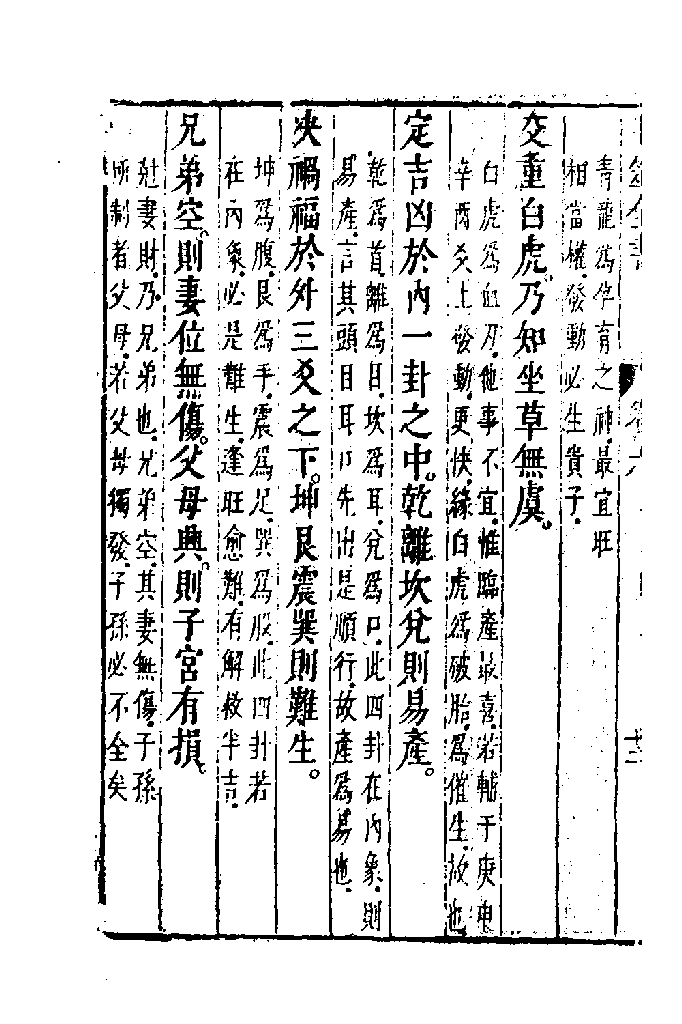 青龍爲孕育之神最宜旺
相當權發動必生貴子
交重白虎乃知坐草無虞
白虎爲血刃他事不宜惟臨產最喜若輔于庚申
辛酉爻上發動更快緣白虎爲破胎爲催生故也
定吉凶於內一卦之中乾離坎兌則易產
乾爲首離爲目坎爲耳兌爲口此四卦在內象則
易產言其頭目耳口先出是順行故產爲易也
決禍福於外三爻之下坤艮震巽則難生
坤爲腹艮爲手震爲足巽爲股此四卦若
在內象必是難生逢旺愈難有解救半吉
兄弟空則妻位無傷父母興則子宮有損
尅妻財乃兄弟也兄弟空其妻無傷子孫
所制者父母若父母獨發子孫必不全矣